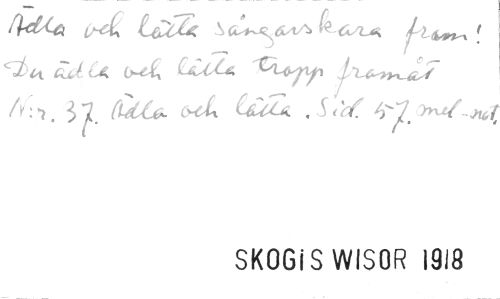 Ädla och lätta sångarskara fram!
Du ädla och lätta tropp framåt
N:r. 37. Ädla och lätta. Sid. 57. mel-not.
SKOGIS WISOR 1918